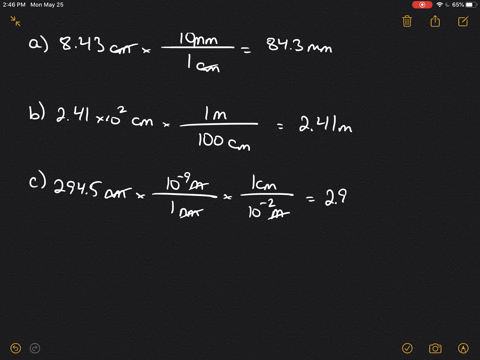 2:46 PM Mon May 25
65%
a) 8.43 cm × 10mm / 1cm = 84.3 mm
b) 2.41 × 10² cm × 1m / 100 cm = 2.41m
c) 294.5 × 10⁻⁹ / 1 × 1cm / 10⁻² = 2.9